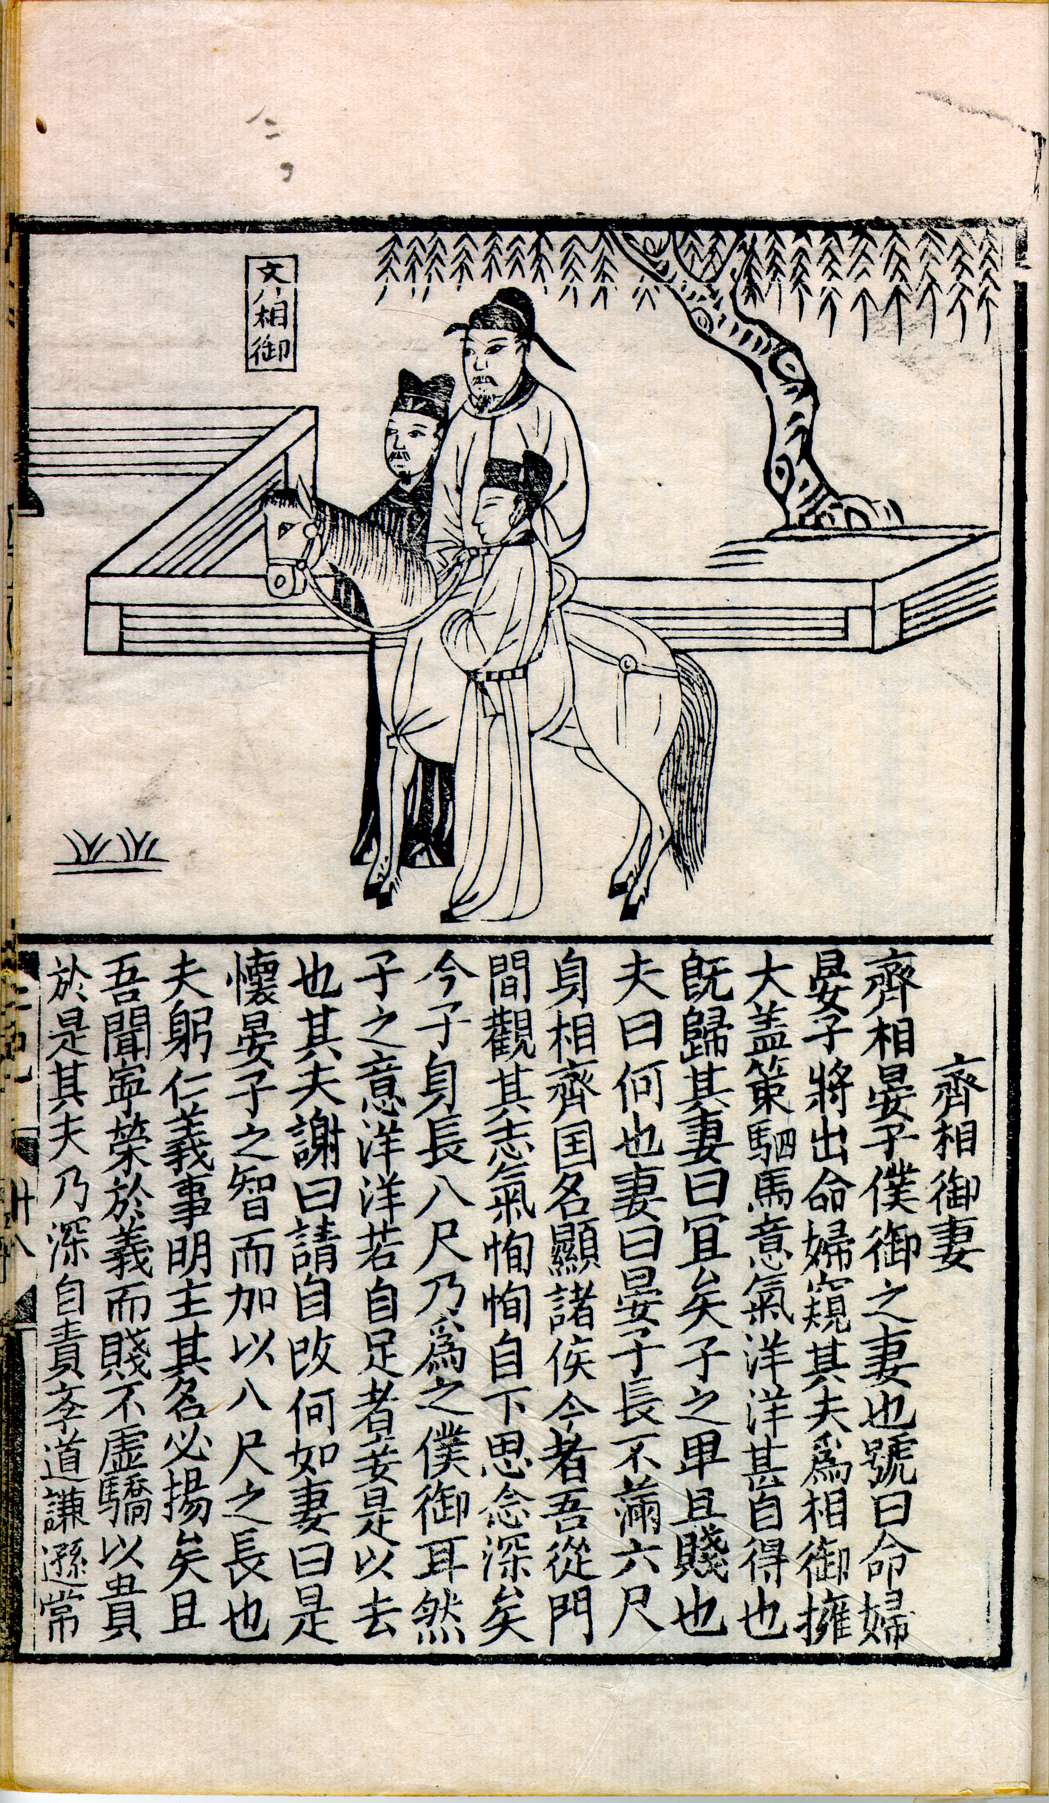 文相御
齊相御妻
齊相晏子僕御之妻也號曰命婦
晏子將出命婦窺其夫爲相御擁
大盖策駟馬意氣洋洋甚自得也
既歸其妻曰冝矣子之卑且賤也
夫曰何也妻曰晏子長不滿六尺
身相齊国名顯諸侯今者吾從門
間觀其志氣恂恂自下思念深矣
今子身長八尺乃爲之僕御耳然
子之意洋洋若自足者妾是以去
也其夫謝曰請自改何如妻曰是
懷晏子之智而加以八尺之長也
夫躬仁義事明主其名必揚矣且
吾聞寕榮於義而賤不虛驕以貴
於是其夫乃深自責孝道謙遜常